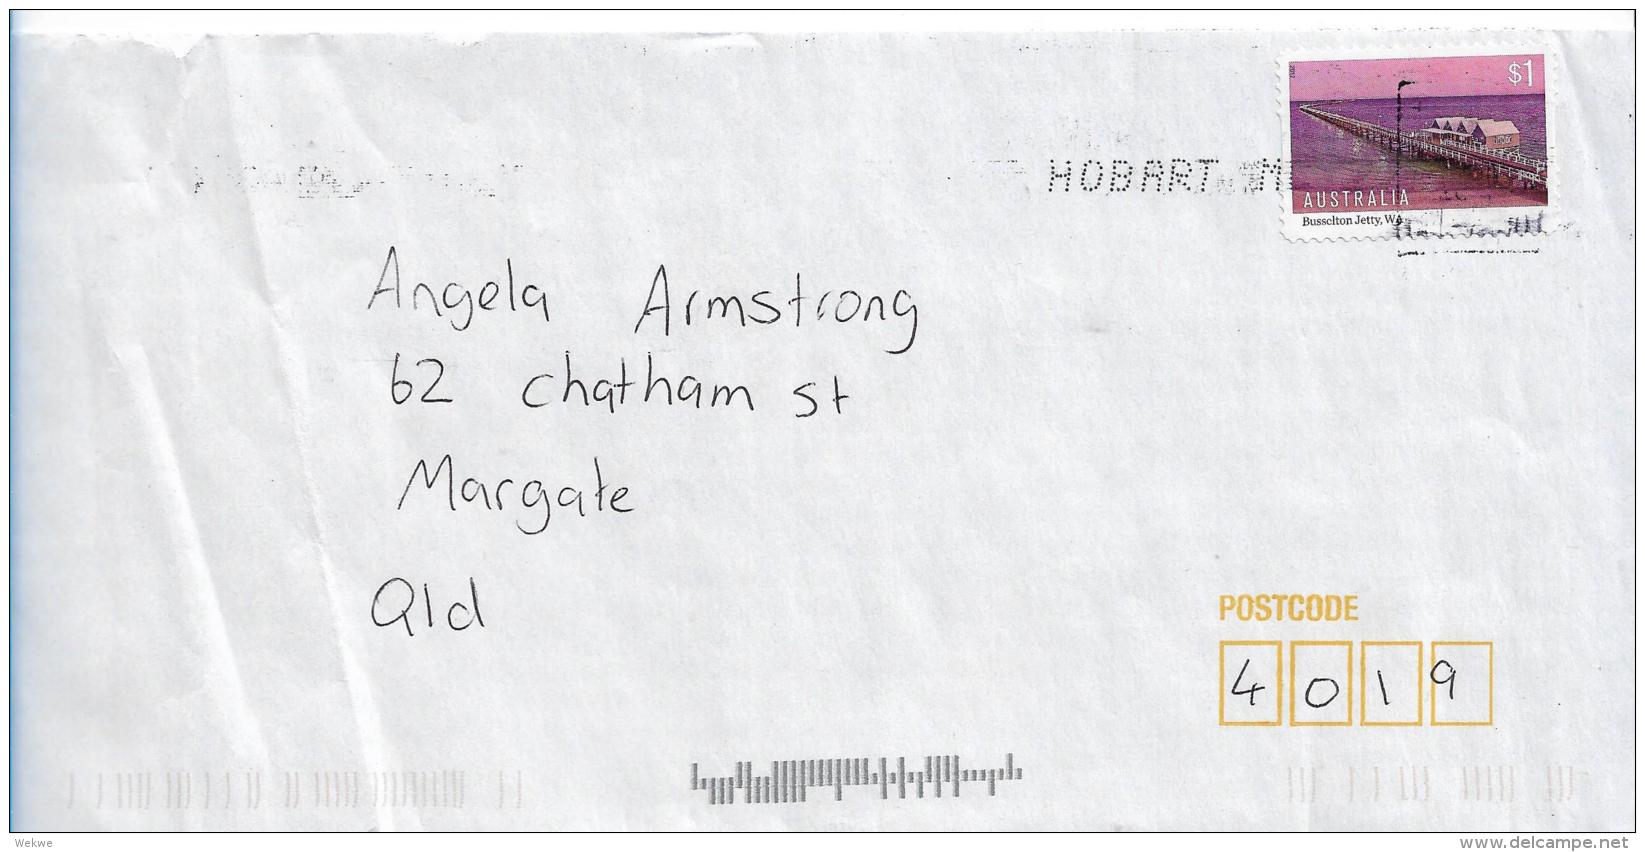 2012
$1
HOBART M
AUSTRALIA
Busselton Jetty, WA
Angela Armstrong
62 chatham st
Margate
Qld
POSTCODE
4019
Wekwe
www.delcampe.net